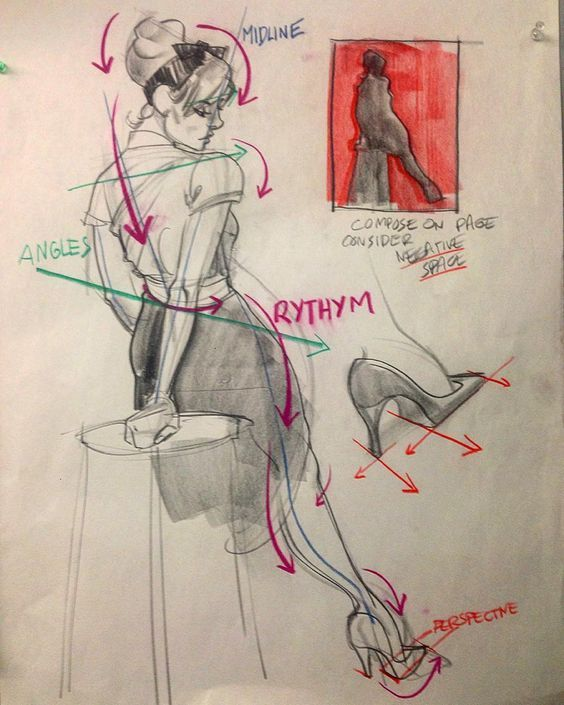 MIDLINE
COMPOSE ON PAGE
CONSIDER
NEGATIVE
SPACE
ANGLES
RYTHYM
PERSPECTIVE